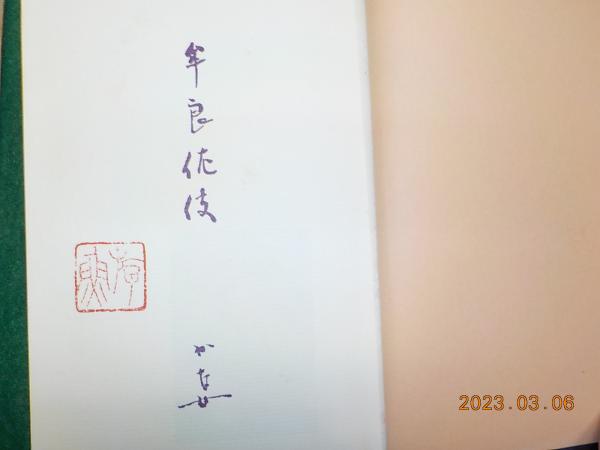 牟良佐伎
かな女
2023.03.06